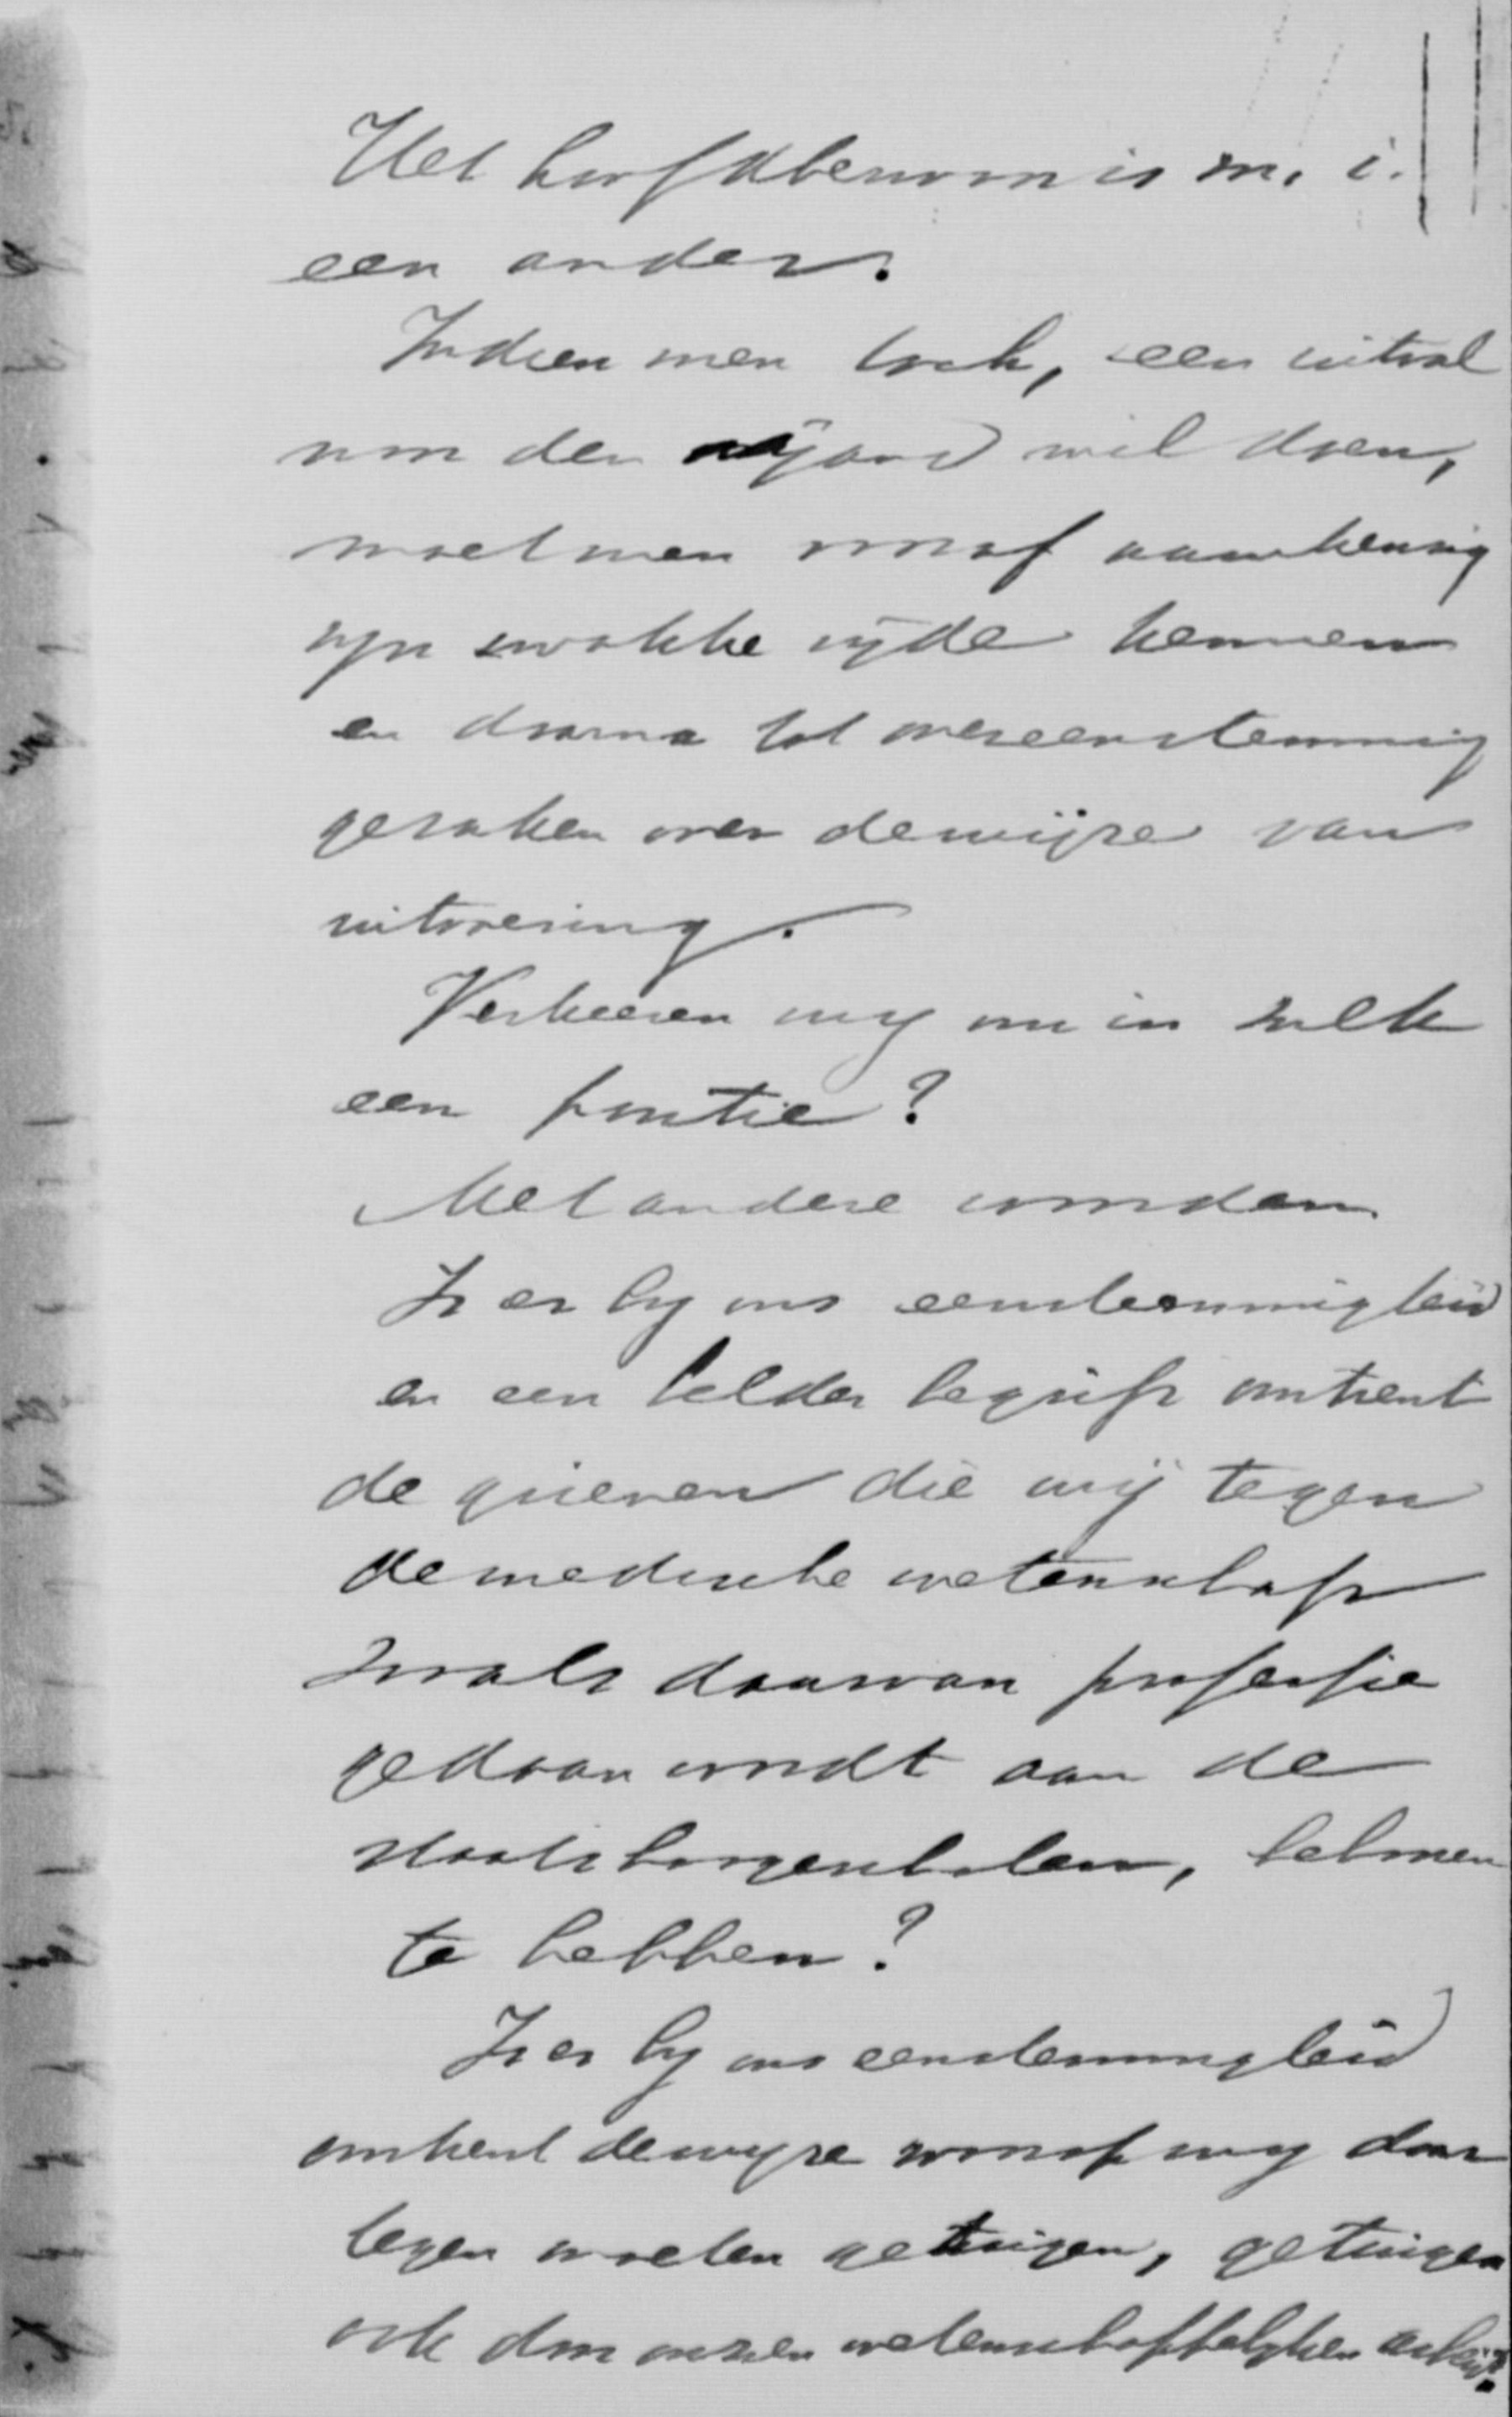 Het hoofdbezwaar is m. i.
een ander.
Indien men toch, een uitval
voor den vijand wil doen,
moet men vooraf nauwkeurig
zijn zwakke zijde kennen
en daarna tot overeenstemming
geraken over de wijze van
uitvoering.
Verkeeren wij nu in zulk
een positie?
Met andere woorden
Is er bij ons eenstemmigheid
en een helder begrip omtrent
de grieven die wij tegen
de medische wetenschap
zooals daarvan professie
gedaan wordt aan de
staatshoogescholen, behooren
te hebben?
Is er bij ons eenstemmigheid
omtrent de wijze waarop wij daar
tegen moeten getuigen, getuigen
ook door onzen wetenschappelijken arbeid?